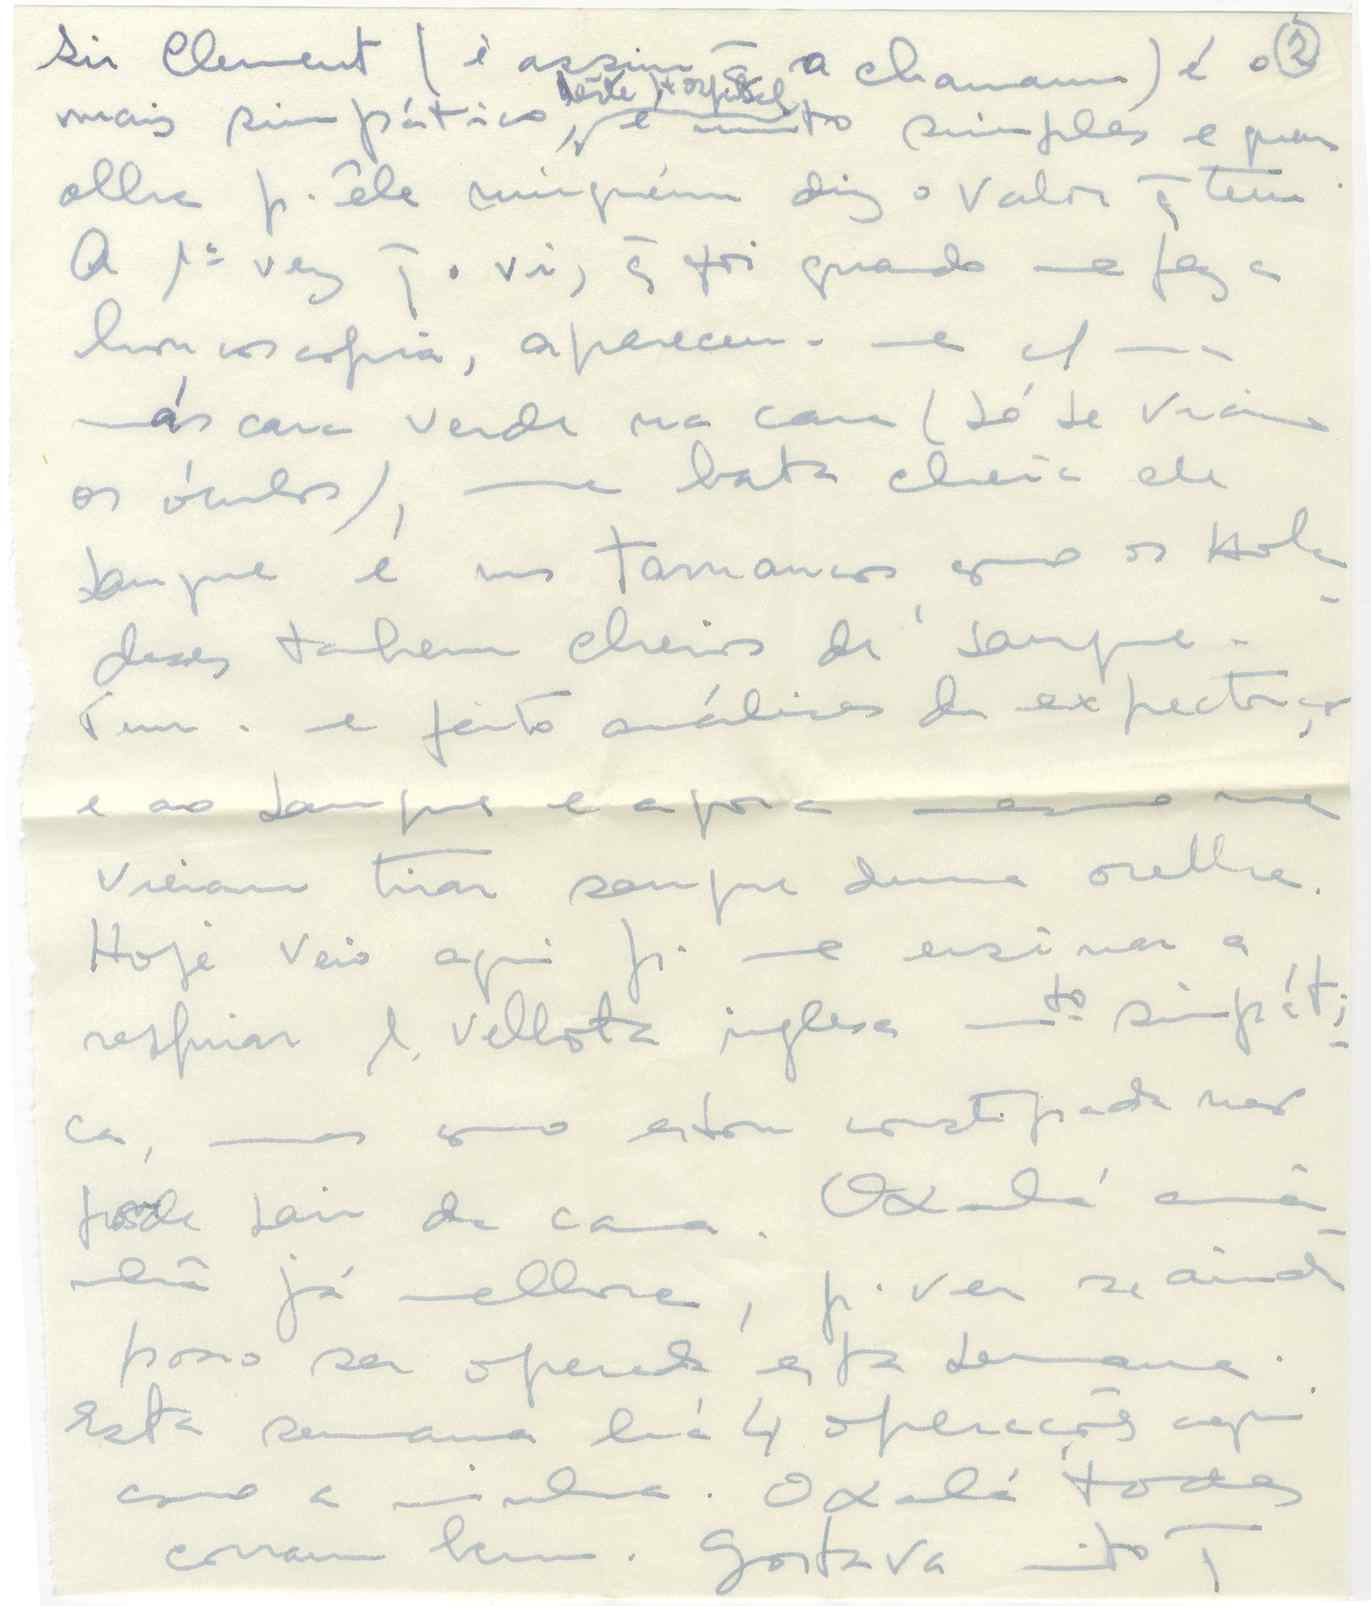 ②
Sir Clement (é assim q̄ o chamam) é o
mais simpático, deste Hospital e muito simples e quem
olha p. êle ninguém diz o valor q̄ tem.
A 1ª vez q̄ o vi, q̄ foi quando me fez a
broncoscopia, apareceu-me c/ uma
máscara verde na cara (só se viam
os óculos), uma bata cheia de
sangue e uns tamancos como os Holan-
deses tambem cheios de sangue.
Tem-me feito análises da expectoração
e ao sangue e agora mesmo me
vieram tirar sangue duma orelha.
Hoje veio aqui p. me ensinar a
respirar 1. velhota inglesa mto simpáti-
ca, mas como estou constipada não
pude sair da cama. Oxalá ama-
nhã já melhore, p. ver se ainda
posso ser operada esta semana.
Esta semana há 4 operações aqui
como a minha. Oxalá todas
corram bem. Gostava mto q̄